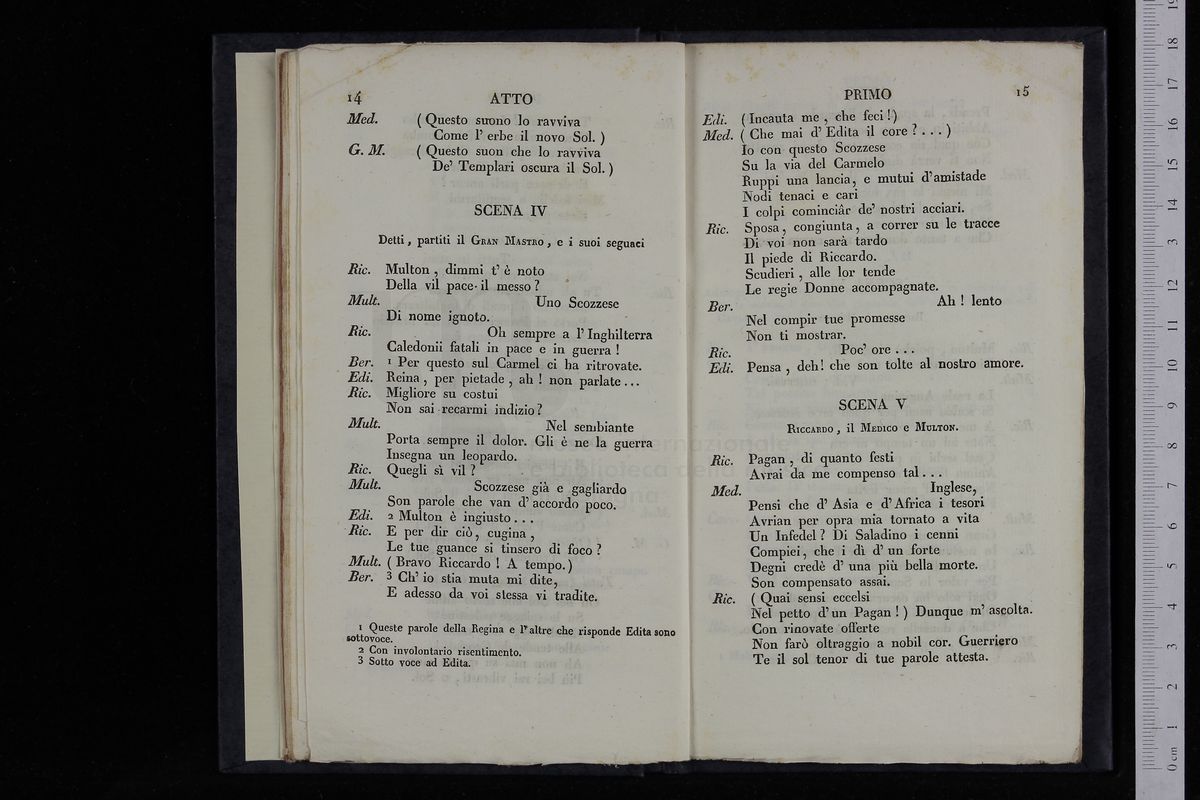 14 ATTO
Med. ( Questo suono lo ravviva
Come l' erbe il novo Sol. )
G. M. ( Questo suon che lo ravviva
De' Templari oscura il Sol. )
SCENA IV
Detti , partiti il GRAN MASTRO , e i suoi seguaci
Ric. Multon , dimmi t' è noto
Della vil pace il messo ?
Mult. Uno Scozzese
Di nome ignoto.
Ric. Oh sempre a l' Inghilterra
Caledonii fatali in pace e in guerra !
Ber. 1 Per questo sul Carmel ci ha ritrovate.
Edi. Reina , per pietade , ah ! non parlate ...
Ric. Migliore su costui
Non sai recarmi indizio ?
Mult. Nel sembiante
Porta sempre il dolor. Gli è ne la guerra
Insegna un leopardo.
Ric. Quegli sì vil ?
Mult. Scozzese già e gagliardo
Son parole che van d' accordo poco.
Edi. 2 Multon è ingiusto ...
Ric. E per dir ciò , cugina ,
Le tue guance si tinsero di foco ?
Mult. ( Bravo Riccardo ! A tempo. )
Ber. 3 Ch' io stia muta mi dite,
E adesso da voi stessa vi tradite.
1 Queste parole della Regina e l' altre che risponde Edita sono
sottovoce.
2 Con involontario risentimento.
3 Sotto voce ad Edita.
PRIMO 15
Edi. ( Incauta me , che feci ! )
Med. ( Che mai d' Edita il core ? ... )
Io con questo Scozzese
Su la via del Carmelo
Ruppi una lancia, e mutui d'amistade
Nodi tenaci e cari
I colpi cominciâr de' nostri acciari.
Ric. Sposa , congiunta , a correr su le tracce
Di voi non sarà tardo
Il piede di Riccardo.
Scudieri , alle lor tende
Le regie Donne accompagnate.
Ber. Ah ! lento
Nel compir tue promesse
Non ti mostrar.
Ric. Poc' ore ...
Edi. Pensa , deh! che son tolte al nostro amore.
SCENA V
RICCARDO , il MEDICO e MULTON.
Ric. Pagan , di quanto festi
Avrai da me compenso tal ...
Med. Inglese,
Pensi che d' Asia e d' Africa i tesori
Avrian per opra mia tornato a vita
Un Infedel ? Di Saladino i cenni
Compiei , che i dì d' un forte
Degni credè d' una più bella morte.
Son compensato assai.
Ric. ( Quai sensi eccelsi
Nel petto d' un Pagan ! ) Dunque m' ascolta.
Con rinovate offerte
Non farò oltraggio a nobil cor. Guerriero
Te il sol tenor di tue parole attesta.